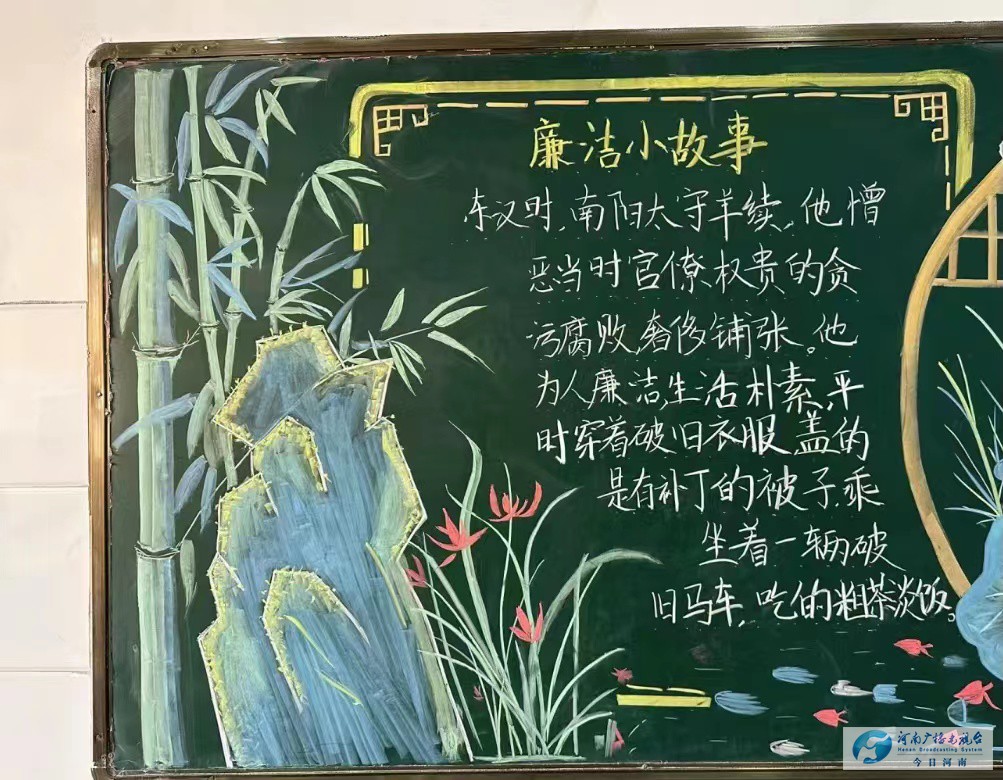 廉洁小故事
东汉时,南阳太守羊续。他憎
恶当时官僚权贵的贪
污腐败,奢侈铺张。他
为人廉洁,生活朴素,平
时穿着破旧衣服,盖的
是有补丁的被子,乘
坐着一辆破
旧马车,吃的粗茶淡饭。
河南广播电视台
Henan Broadcasting System
今日河南